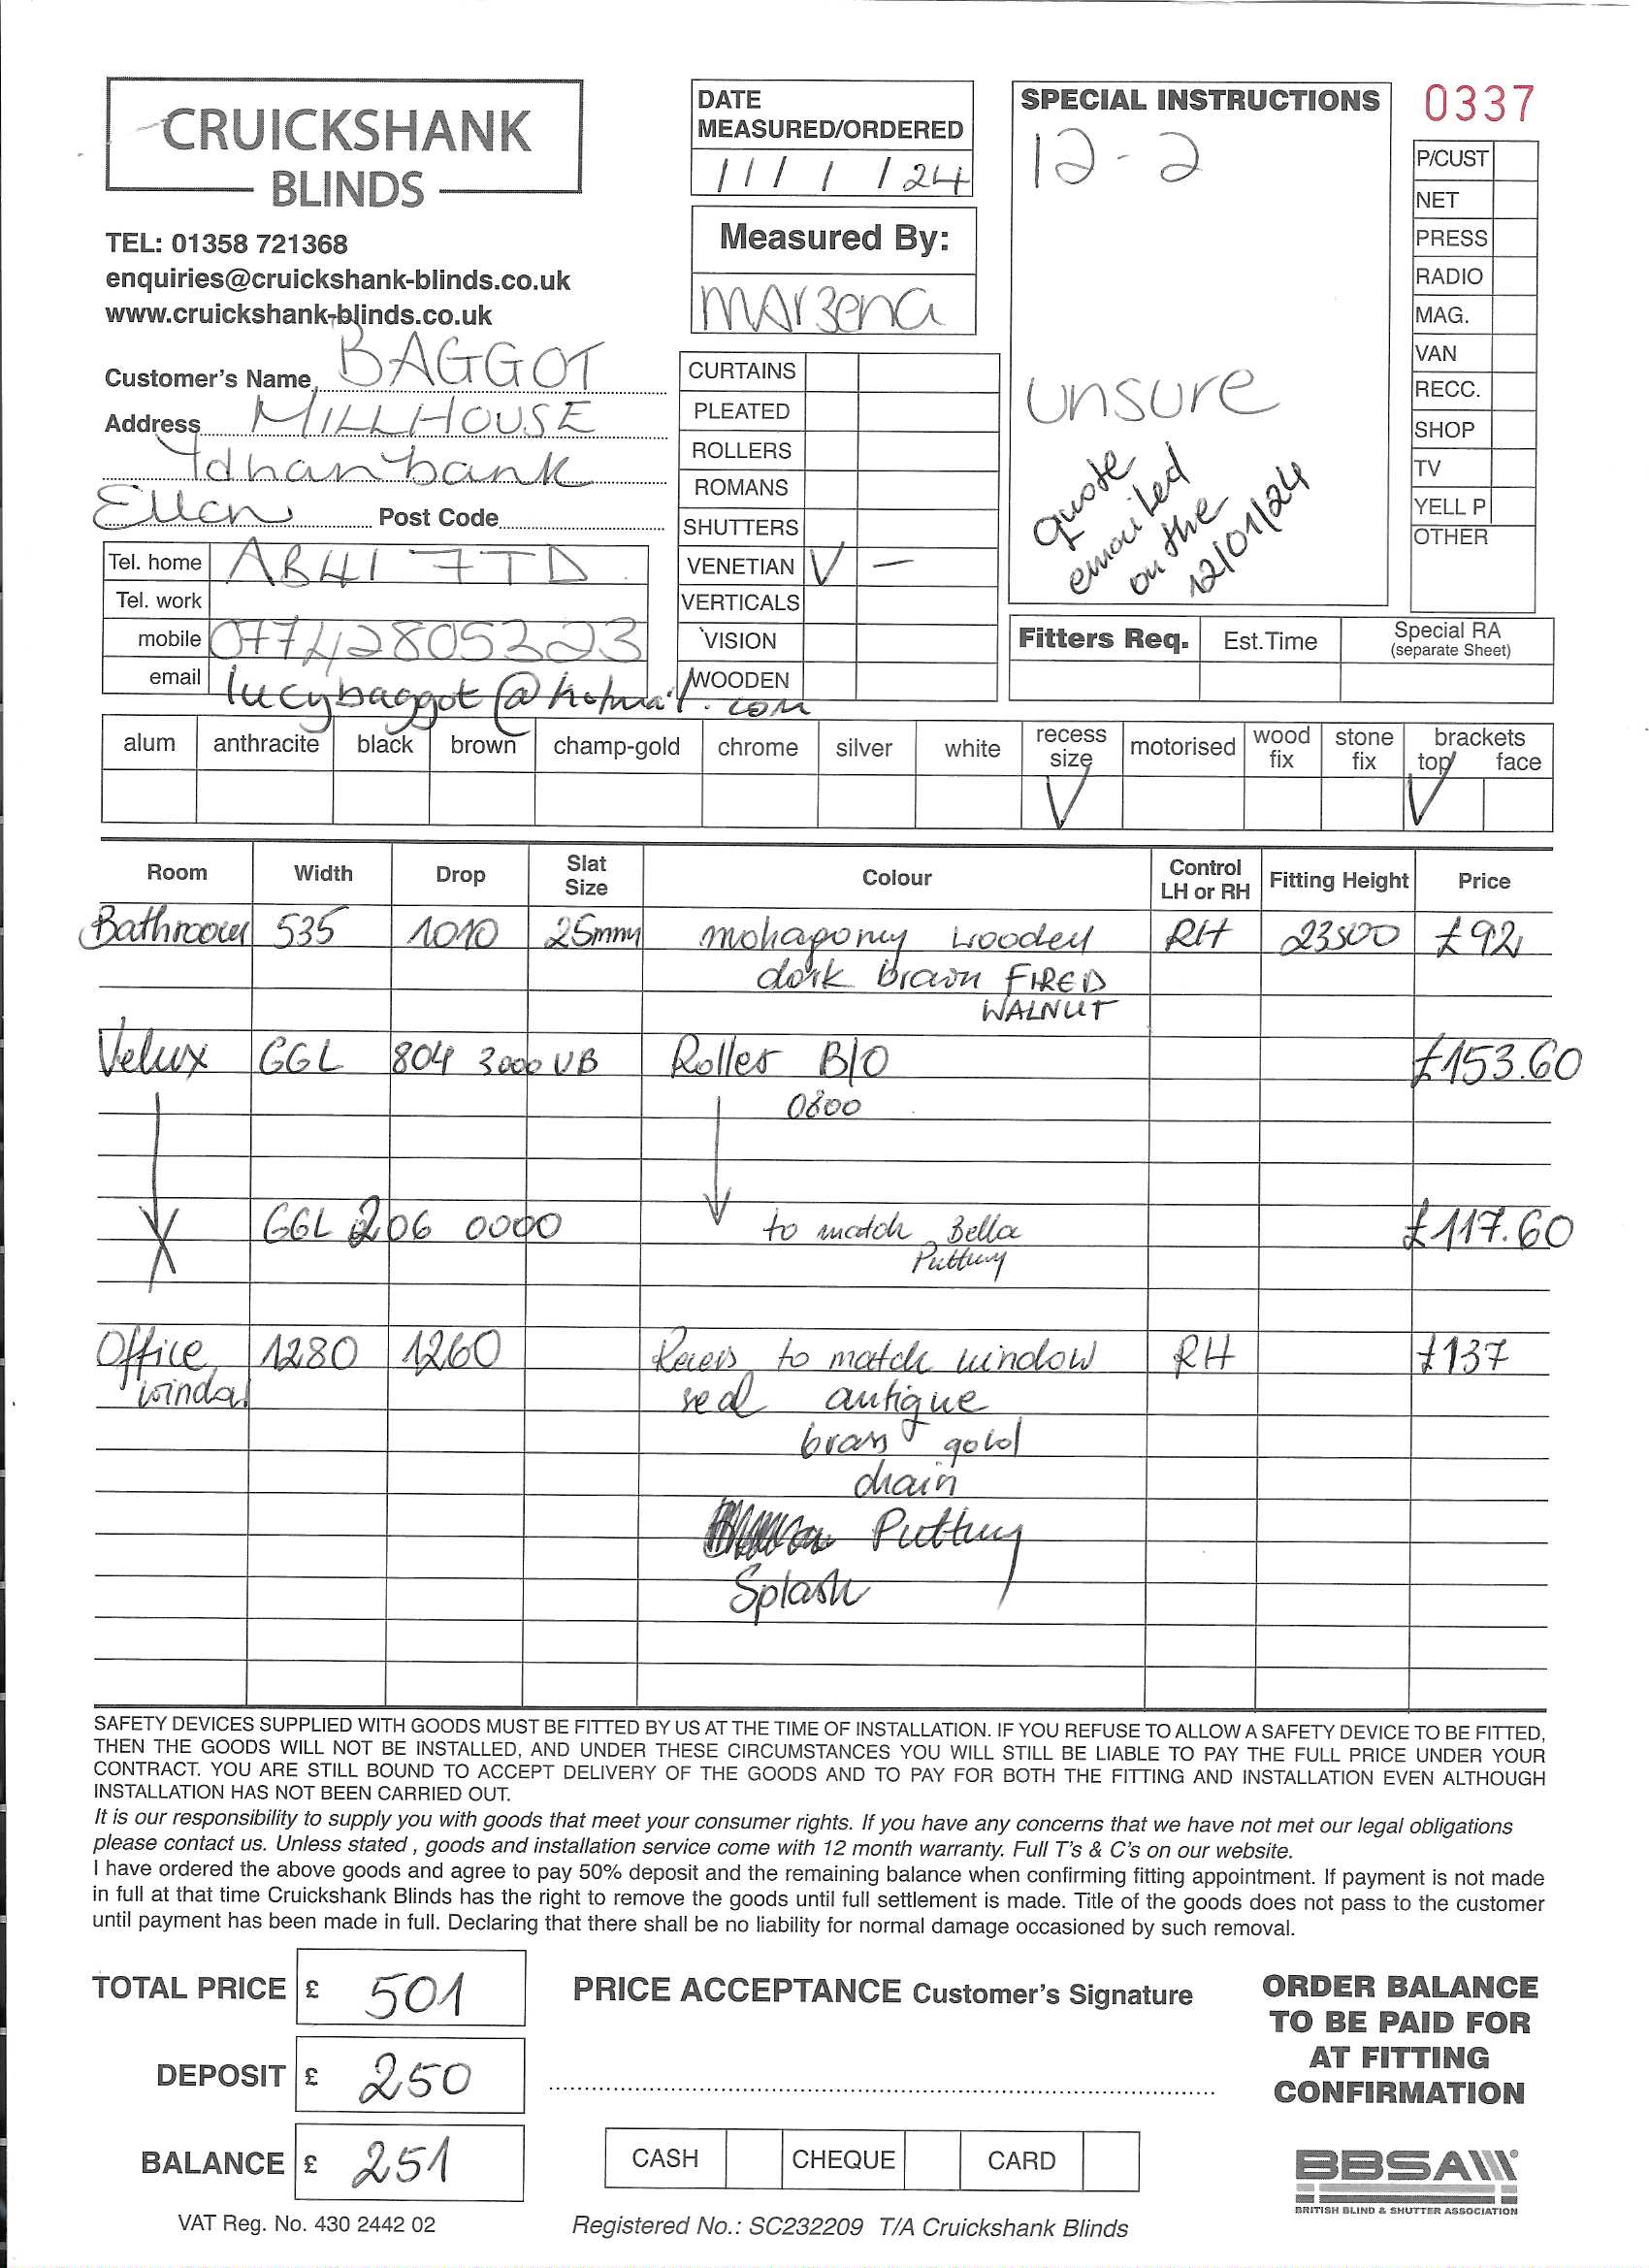 CRUICKSHANK
BLINDS
TEL: 01358 721368
enquiries@cruickshank-blinds.co.uk
www.cruickshank-blinds.co.uk
DATE
MEASURED/ORDERED
11/1/24
Measured By:
MArzena
SPECIAL INSTRUCTIONS
12-2
unsure
quote
emailed
on the
12/01/24
0337
P/CUST
NET
PRESS
RADIO
MAG.
VAN
RECC.
SHOP
TV
YELL P
OTHER
Customer's Name BAGGOT
Address MILLHOUSE
Ellon Post Code
Tel. home AB41 7TD
Tel. work
mobile 07742805323
email lucybaggot@hotmail.com
CURTAINS
PLEATED
ROLLERS
ROMANS
SHUTTERS
VENETIAN V –
VERTICALS
VISION
WOODEN
Fitters Req. Est.Time Special RA
(separate Sheet)
alum anthracite black brown champ-gold chrome silver white recess size motorised wood fix stone fix brackets top face
Room Width Drop Slat Size Colour Control LH or RH Fitting Height Price
Bathroom 535 1010 25mm mohagony wooden RH 23500 £92
dark brown FIRED
WALNUT
Velux GGL 804 3000 UB Roller B/O £153.60
0800
GGL 206 0000 to match Bella £117.60
Putty
Office 1280 1260 to match window RH £137
window seal antique
brass gold
chain
Putty
Splash
SAFETY DEVICES SUPPLIED WITH GOODS MUST BE FITTED BY US AT THE TIME OF INSTALLATION. IF YOU REFUSE TO ALLOW A SAFETY DEVICE TO BE FITTED,
THEN THE GOODS WILL NOT BE INSTALLED, AND UNDER THESE CIRCUMSTANCES YOU WILL STILL BE LIABLE TO PAY THE FULL PRICE UNDER YOUR
CONTRACT. YOU ARE STILL BOUND TO ACCEPT DELIVERY OF THE GOODS AND TO PAY FOR BOTH THE FITTING AND INSTALLATION EVEN ALTHOUGH
INSTALLATION HAS NOT BEEN CARRIED OUT.
It is our responsibility to supply you with goods that meet your consumer rights. If you have any concerns that we have not met our legal obligations
please contact us. Unless stated , goods and installation service come with 12 month warranty. Full T's & C's on our website.
I have ordered the above goods and agree to pay 50% deposit and the remaining balance when confirming fitting appointment. If payment is not made
in full at that time Cruickshank Blinds has the right to remove the goods until full settlement is made. Title of the goods does not pass to the customer
until payment has been made in full. Declaring that there shall be no liability for normal damage occasioned by such removal.
TOTAL PRICE £ 501
DEPOSIT £ 250
BALANCE £ 251
VAT Reg. No. 430 2442 02
PRICE ACCEPTANCE Customer's Signature
CASH CHEQUE CARD
Registered No.: SC232209 T/A Cruickshank Blinds
ORDER BALANCE
TO BE PAID FOR
AT FITTING
CONFIRMATION
BBSA
BRITISH BLIND & SHUTTER ASSOCIATION